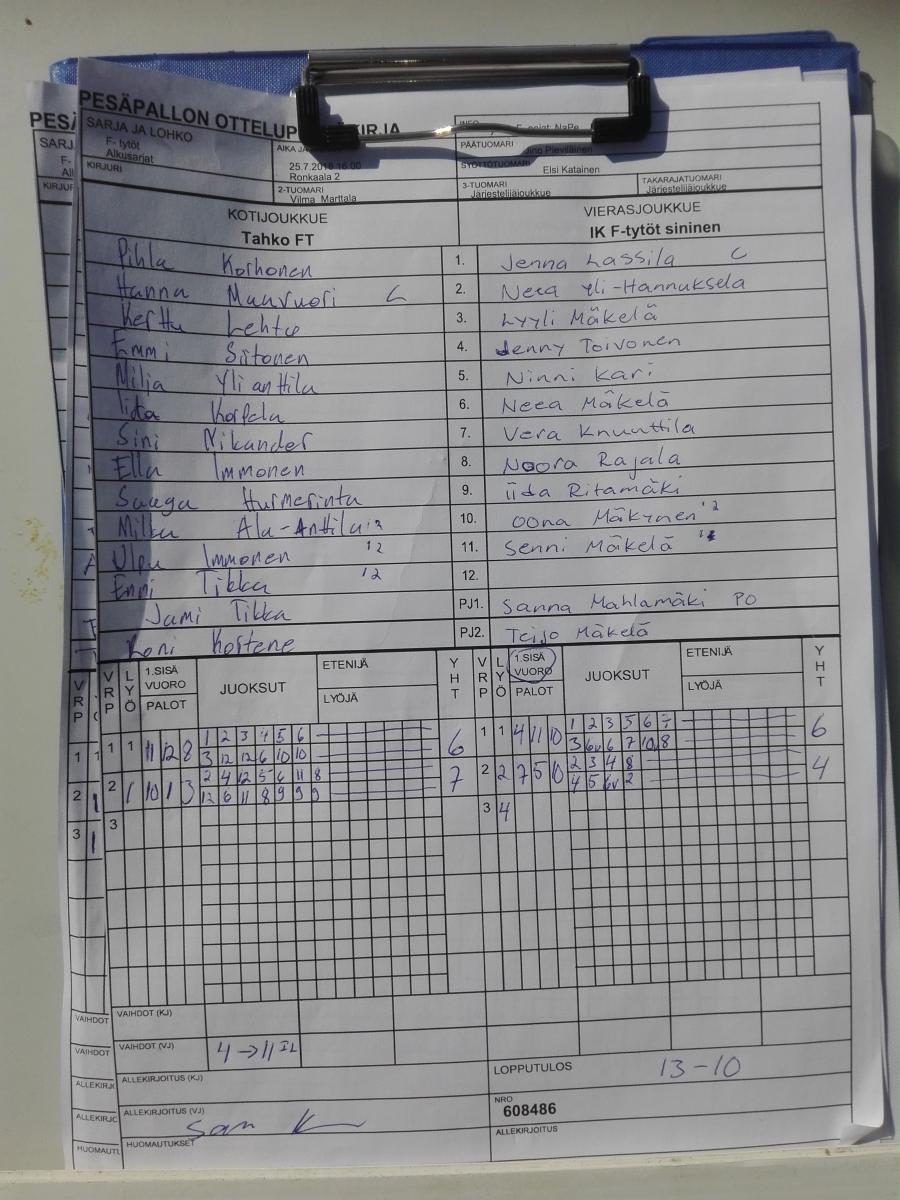 PESÄPALLON OTTELUP KIRJA
SARJA JA LOHKO
F- tytöt
Alkusarjat
KIRJURI
AIKA JA
25.7.2018 16:00
Ronkaala 2
2-TUOMARI
Vilma Marttala
PÄÄTUOMARI
SYÖTTÖTUOMARI
Elsi Katainen
3-TUOMARI
Järjestelijäjoukkue
TAKARAJATUOMARI
Järjestelijäjoukkue
KOTIJOUKKUE VIERASJOUKKUE
Tahko FT IK F-tytöt sininen
Pihla Korhonen 1. Jenna Lassila C
Hanna Muuvuori C 2. Neea Yli-Hannuksela
Kerttu Lehto 3. Lyyli Mäkelä
Emmi Siitonen 4. Jenny Toivonen
Milja Yli anttila 5. Ninni Kari
Iida 6. Neea Mäkelä
Sini Nikander 7. Vera Knuuttila
Ella Immonen 8. Noora Rajala
Saaga Hurmerinta 9. iida Ritamäki
Milka Ala-Anttila '12 10. oona Mäkynen '12
Ulpu Immonen '12 11. Senni Mäkelä
Enni Tikka '12 12.
Jami Tikka PJ1. Sanna Mahlamäki PO
PJ2. Teijo Mäkelä
VRP LYÖ 1.SISÄ VUORO PALOT JUOKSUT ETENIJÄ LYÖJÄ YHT VRP LYÖ 1.SISÄ VUORO PALOT JUOKSUT ETENIJÄ LYÖJÄ YHT
1 1 11 12 8 1 2 3 4 5 6 6 1 1 4 11 10 1 2 3 5 6 7 6
3 12 12 6 10 10 3 6v 6 7 10 8
2 1 10 1 3 2 4 12 5 6 11 8 7 2 2 7 5 10 2 3 4 8 4
12 6 11 8 9 9 9 4 5 6v 2
3 3 4
VAIHDOT (KJ)
VAIHDOT (VJ) 4 → 11 IL
ALLEKIRJOITUS (KJ)
LOPPUTULOS 13-10
ALLEKIRJOITUS (VJ)
NRO
608486
HUOMAUTUKSET
ALLEKIRJOITUS